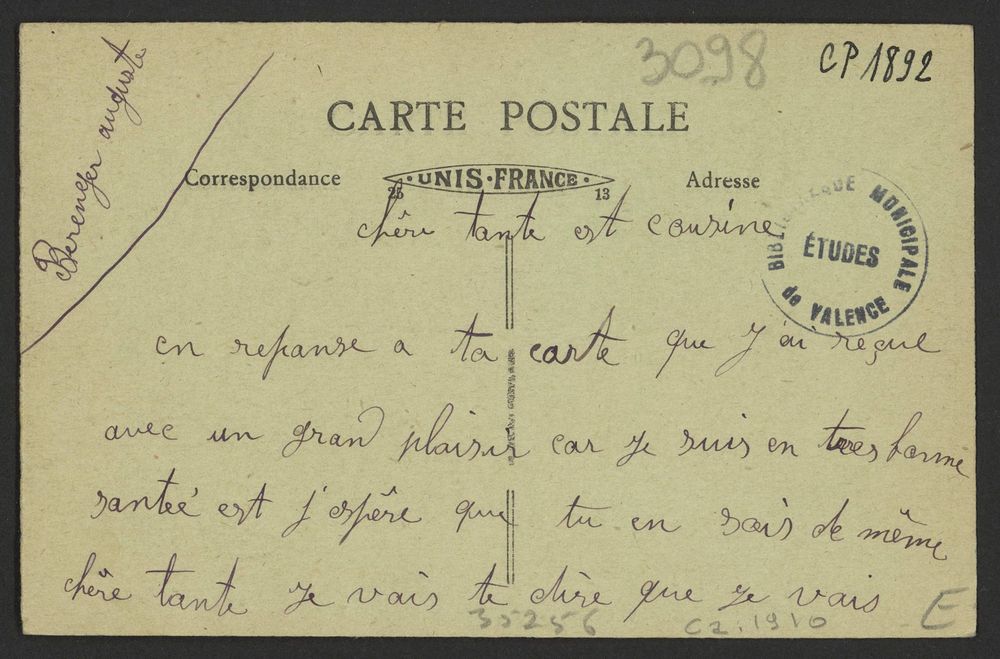 3098
CP 1892
Berenger auguste
CARTE POSTALE
Correspondance
UNIS·FRANCE
Adresse
25 13
BIBLIOTHEQUE MUNICIPALE
ÉTUDES
de VALENCE
chère tante est cousine
en reponse a ta carte que J'ai reçue
avec un grand plaisir car je suis en tres bonne
santée est j'espêre que tu en sois de même
chêre tante Je vais te dire que Je vais
35256
C2.1910
E